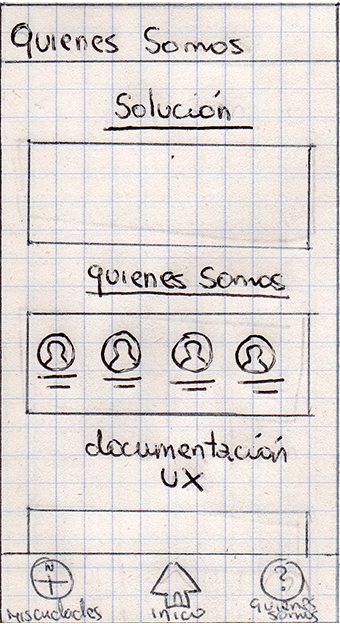 Quienes Somos
Solución
quienes Somos
documentación
UX
N
?
Mis cuidados
inicio
quienes
somos